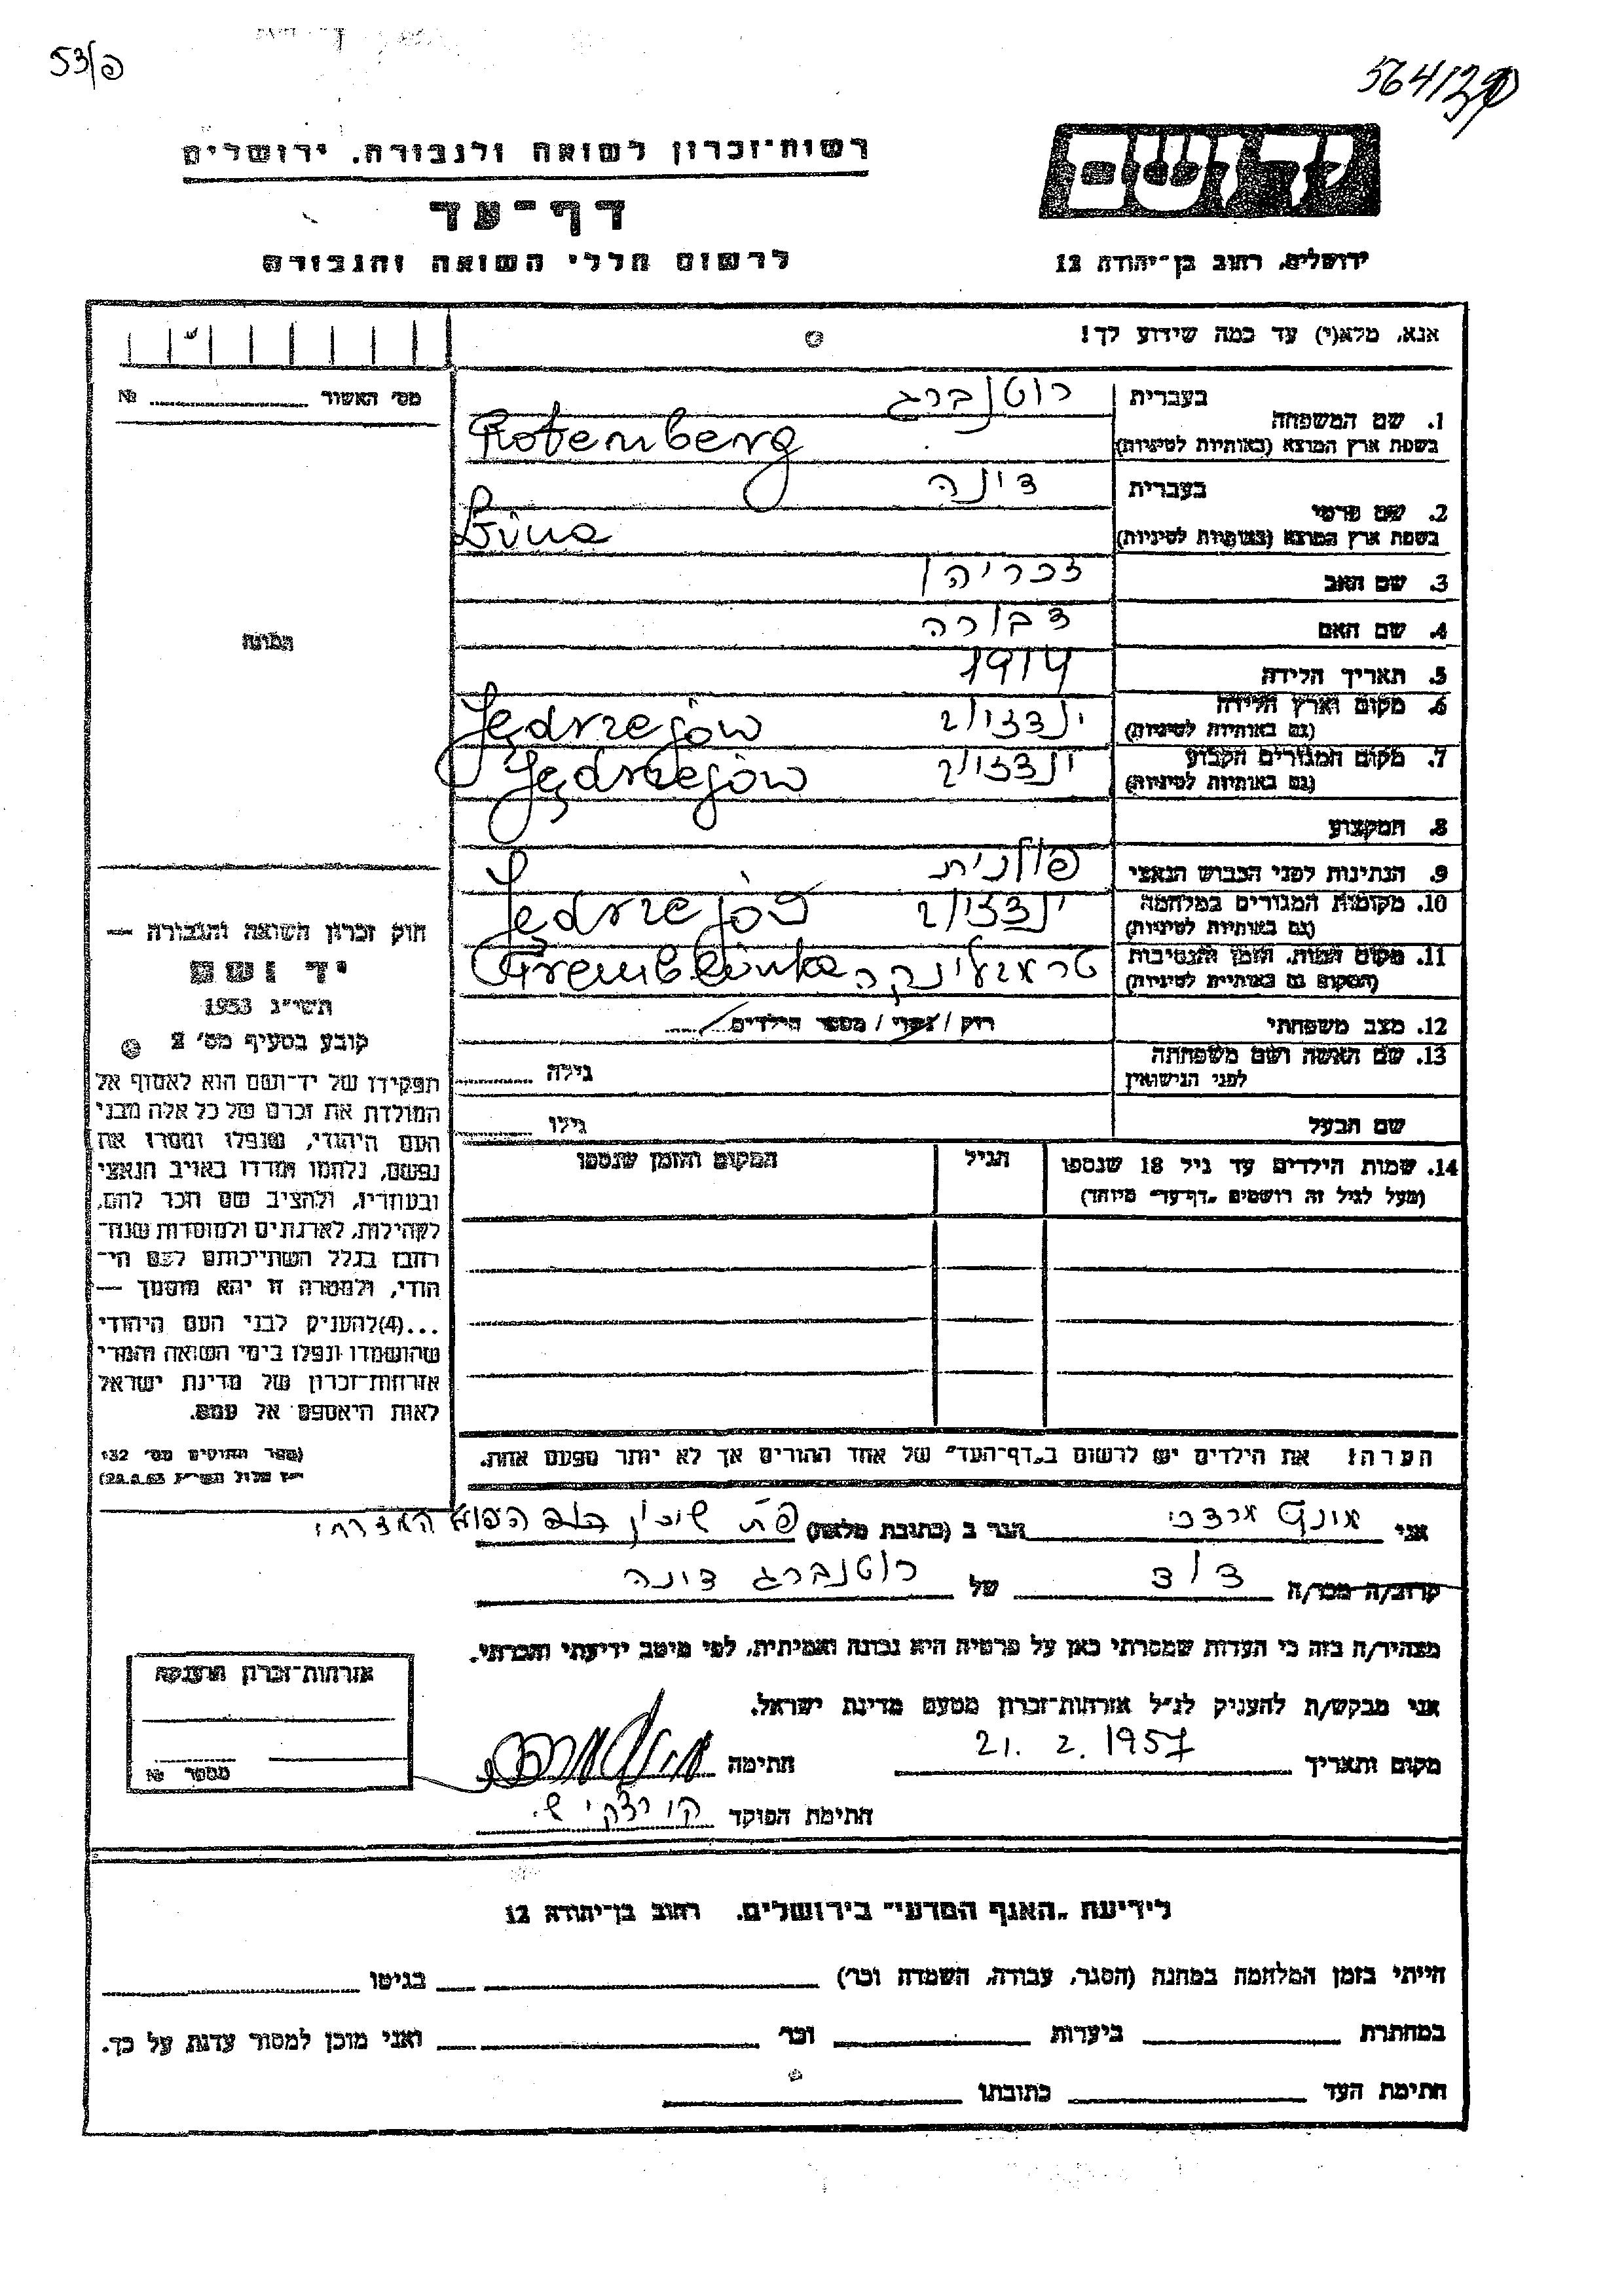 53/פ
564/29
רשות-זכרון לשואה ולגבורה, ירושלים
דף-עד
לרשום חללי השואה והגבורה
יד ושם
ירושלים, רחוב בן-יהודה 12
אנא, מלא(י) עד כמה שידוע לך!
מס' האשור № 
1. שם המשפחה
בעברית רוטנברג
בשפת ארץ המוצא (באותיות לטיניות) Rotemberg
2. שם פרטי
בעברית דינה
בשפת ארץ המוצא (באותיות לטיניות) Dina
3. שם האב
4. שם האם דבורה
5. תאריך הלידה 1914
6. מקום וארץ הלידה ינדזיוב Jędrzejów
(גם באותיות לטיניות)
7. מקום המגורים הקבוע ינדזיוב Jędrzejów
(גם באותיות לטיניות)
8. המקצוע
9. הנתינות לפני הכבוש הנאצי פולנית
10. מקומות המגורים במלחמה ינדזיוב Jędrzejów
(גם באותיות לטיניות)
11. מקום המות, הזמן והנסיבות טרמבלינקה Tremblinka
(המקום גם באותיות לטיניות)
12. מצב משפחתי רווק / נשוי / מספר הילדים
13. שם האשה ושם משפחתה גילה
לפני הנישואין
שם הבעל גילו
14. שמות הילדים עד גיל 18 שנספו הגיל המקום והזמן שנספו
(מעל לגיל זה רושמים "דף-עד" מיוחד)
הערה! את הילדים יש לרשום ב"דף-העד" של אחד ההורים אך לא יותר מפעם אחת.
התמונה
חוק זכרון השואה והגבורה —
יד ושם
תשי"ג 1953
קובע בסעיף מס' 2
תפקידו של יד-ושם הוא לאסוף אל
המולדת את זכרם של כל אלה מבני
העם היהודי, שנפלו ומסרו את
נפשם, נלחמו ומרדו באויב הנאצי
ובעוזריו, ולהציב שם וזכר להם,
לקהילות, לארגונים ולמוסדות שנח-
רבו בגלל השתייכותם לעם הי-
הודי, ולמטרה זו יהא מוסמך —
...(4)להעניק לבני העם היהודי
שהושמדו ונפלו בימי השואה והמרי
אזרחות-זכרון של מדינת ישראל
לאות היאספם אל עמם.
(ספר החוקים מס' 132
אני מרדכי הגר ב (כתובת מלאה) פ"ת שיכון הפועל המזרחי
קרוב/ה מכר/ה דוד של רוטנברג דינה
מצהיר/ה בזה כי העדות שמסרתי כאן על פרטיה היא נכונה ואמיתית, לפי מיטב ידיעתי והכרתי.
אני מבקש/ת להעניק לנ"ל אזרחות-זכרון מטעם מדינת ישראל.
מקום ותאריך 21. 2. 1957 חתימה
חתימת הפוקד
אזרחות-זכרון הוענקה
מספר №
לידיעת "האגף המדעי" בירושלים, רחוב בן-יהודה 12
הייתי בזמן המלחמה במחנה (הסגר, עבודה, השמדה וכו') בגיטו
במחתרת ביערות וכו' ואני מוכן למסור עדות על כך.
חתימת העד כתובתו